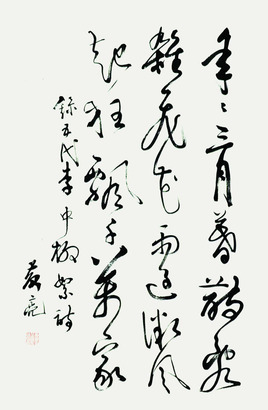 年々三月暮散亂
雜飛花雨過微風
起狂飄千萬家
錄五代李中柳絮詩